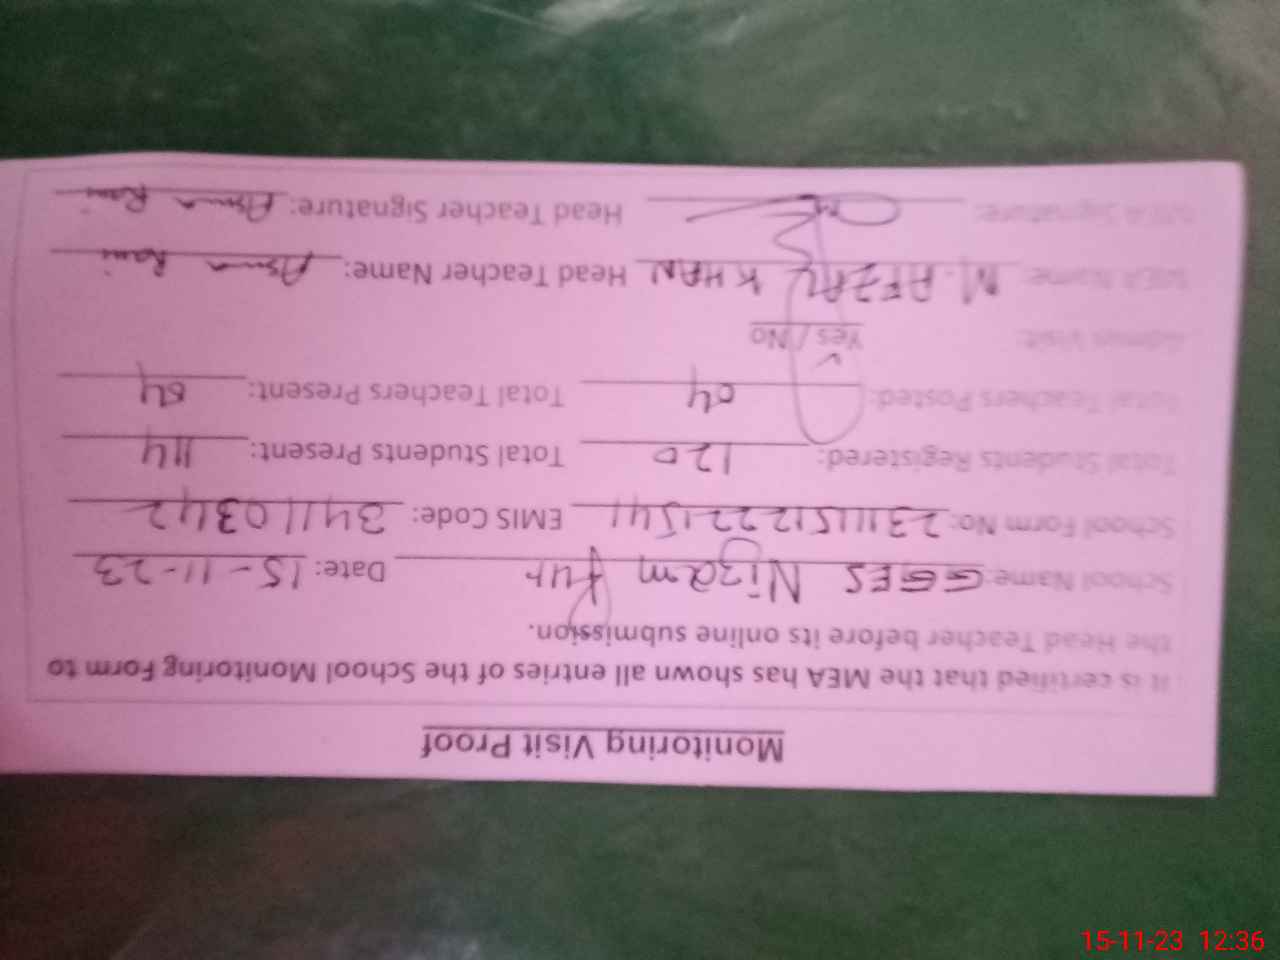 Monitoring Visit Proof
It is certified that the MEA has shown all entries of the School Monitoring Form to
the Head Teacher before its online submission.
School Name: GGES Nizam Pur Date: 15-11-23
School Form No: 23111512221541 EMIS Code: 34110342
Total Students Registered: 120 Total Students Present: 114
Total Teachers Posted: 04 Total Teachers Present: 04
Visit: Yes / No
MEA Name: M. AFZAL KHAN Head Teacher Name: Asma Rani
MEA Signature: Head Teacher Signature: Asma Rani
15-11-23 12:36